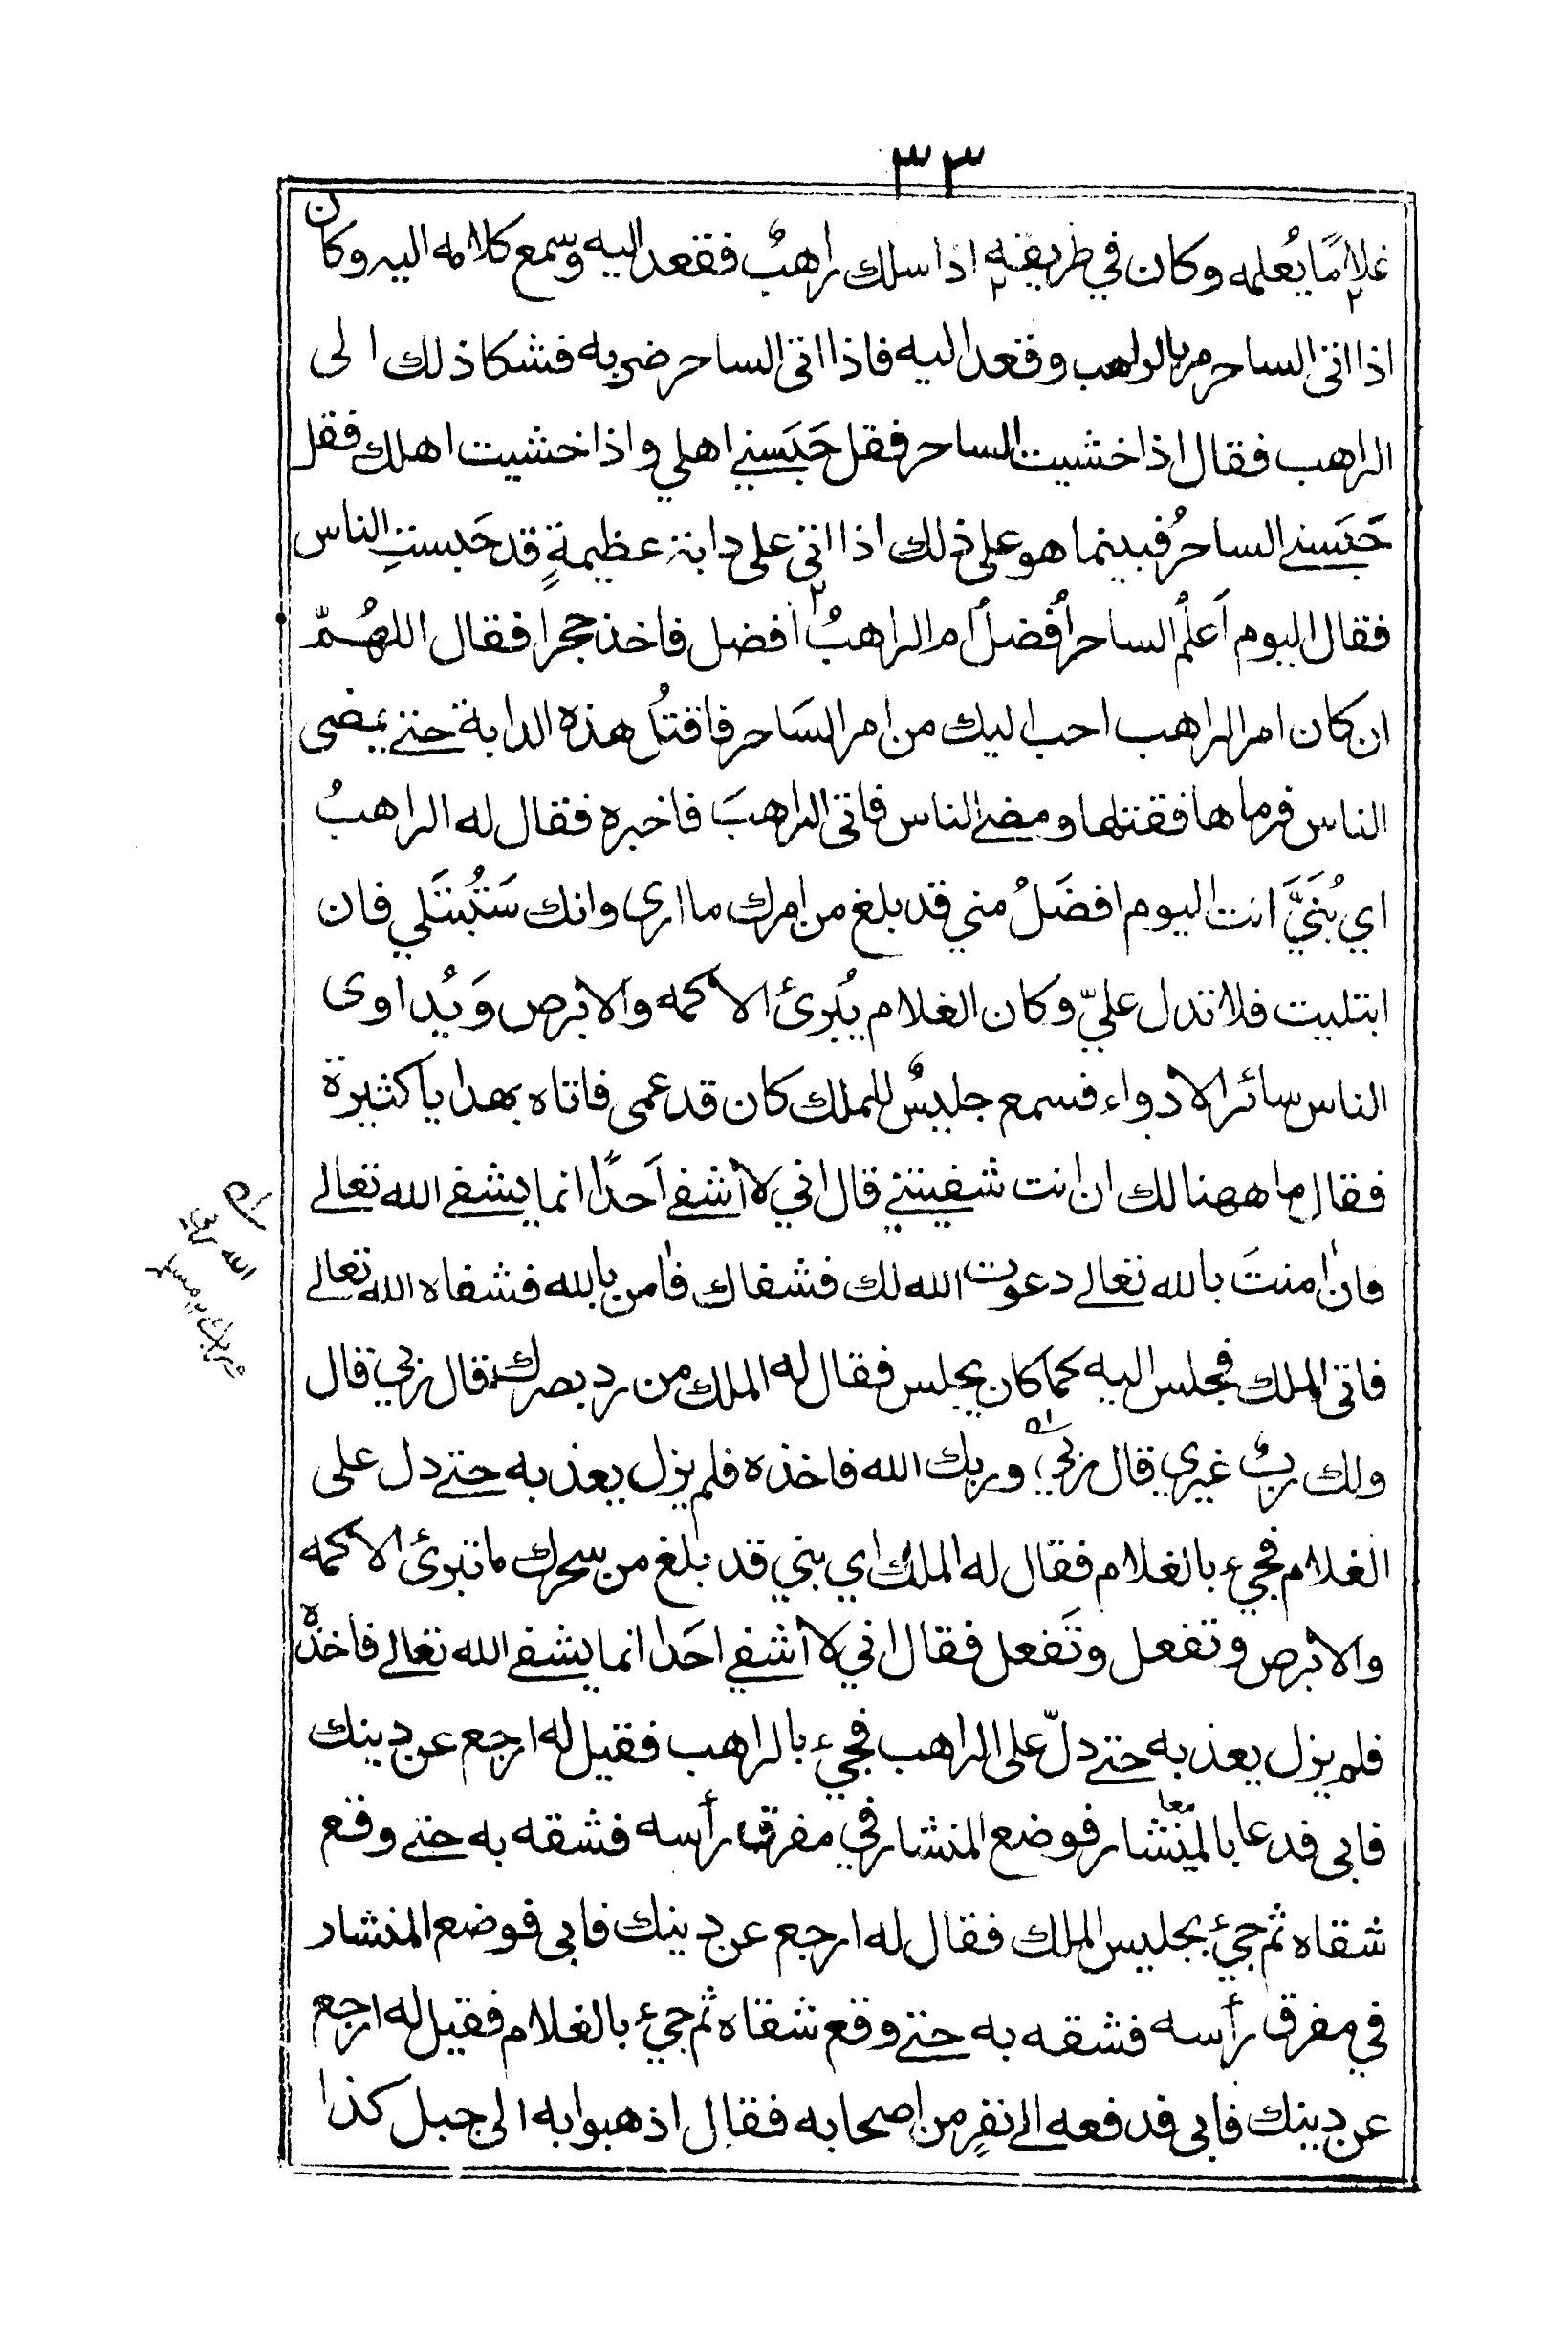 ٣٣
غلامًا يُعلمه وكان في طريقه اذا سلك راهبٌ فقعد اليه وسمع كلامه اليه وكان
اذا اتى الساحر مر بالراهب وقعد اليه فاذا اتى الساحر ضربه فشكا ذلك الى
الراهب فقال اذا خشيت الساحر فقل حَبَسني اهلي واذا خشيت اهلك فقل
حَبَسني الساحرُ فبينما هو على ذلك اذا اتى على دابة عظيمةٍ قد حَبستِ الناس
فقال اليوم اَعلمُ الساحرُ أفضلُ أم الراهبُ افضل فاخذ حجرا فقال اللهُمّ
ان كان امر الراهب احب اليك من امر السَاحر فاقتُل هذه الدابة حتى يمضى
الناس فرماها فقتلها ومضى الناس فاتى الراهبَ فاخبره فقال له الراهبُ
اي بُنَيَّ انت اليوم افضَلُ مني قد بلغ من امرك ما ارى وانك سَتُبتَلي فان
ابتليت فلا تدل عليّ وكان الغلام يُبرئ الاكمه والابرص وَيُداوى
الناس سائر الادواء فسمع جليسٌ للملك كان قد عمى فاتاه بهدايا كثيرة
فقال ما ههنا لك ان انت شفيتني قال اني لا أشفي اَحدًا انما يشفي الله تعالى
فان امنتَ بالله تعالى دعوت الله لك فشفاك فامن بالله فشفاه الله تعالى
فاتى الملك فجلس اليه كما كان يجلس فقال له الملك من رد بصرك قال ربي قال
ولك ربٌ غيري قال ربي وربك الله فاخذه فلم يزل يعذبه حتى دل على
الغلام فجيء بالغلام فقال له الملك اي بني قد بلغ من سحرك ما تبرئ الاكمه
والابرص وتفعل وتَفعل فقال اني لا أشفي احَدا انما يشفي الله تعالى فاخذه
فلم يزل يعذبه حتى دلّ على الراهب فجيء بالراهب فقيل له ارجع عن دينك
فابى فدعا بالمنشار فوضع المنشار في مفرق رأسه فشقه به حتى وقع
شقاه ثم جيء بجليس الملك فقال له ارجع عن دينك فابى فوضع المنشار
في مفرق رأسه فشقه به حتى وقع شقاه ثم جيء بالغلام فقيل له ارجع
عن دينك فابى فدفعه الى نفرٍ من اصحابه فقال اذهبوا به الى جبل كذا